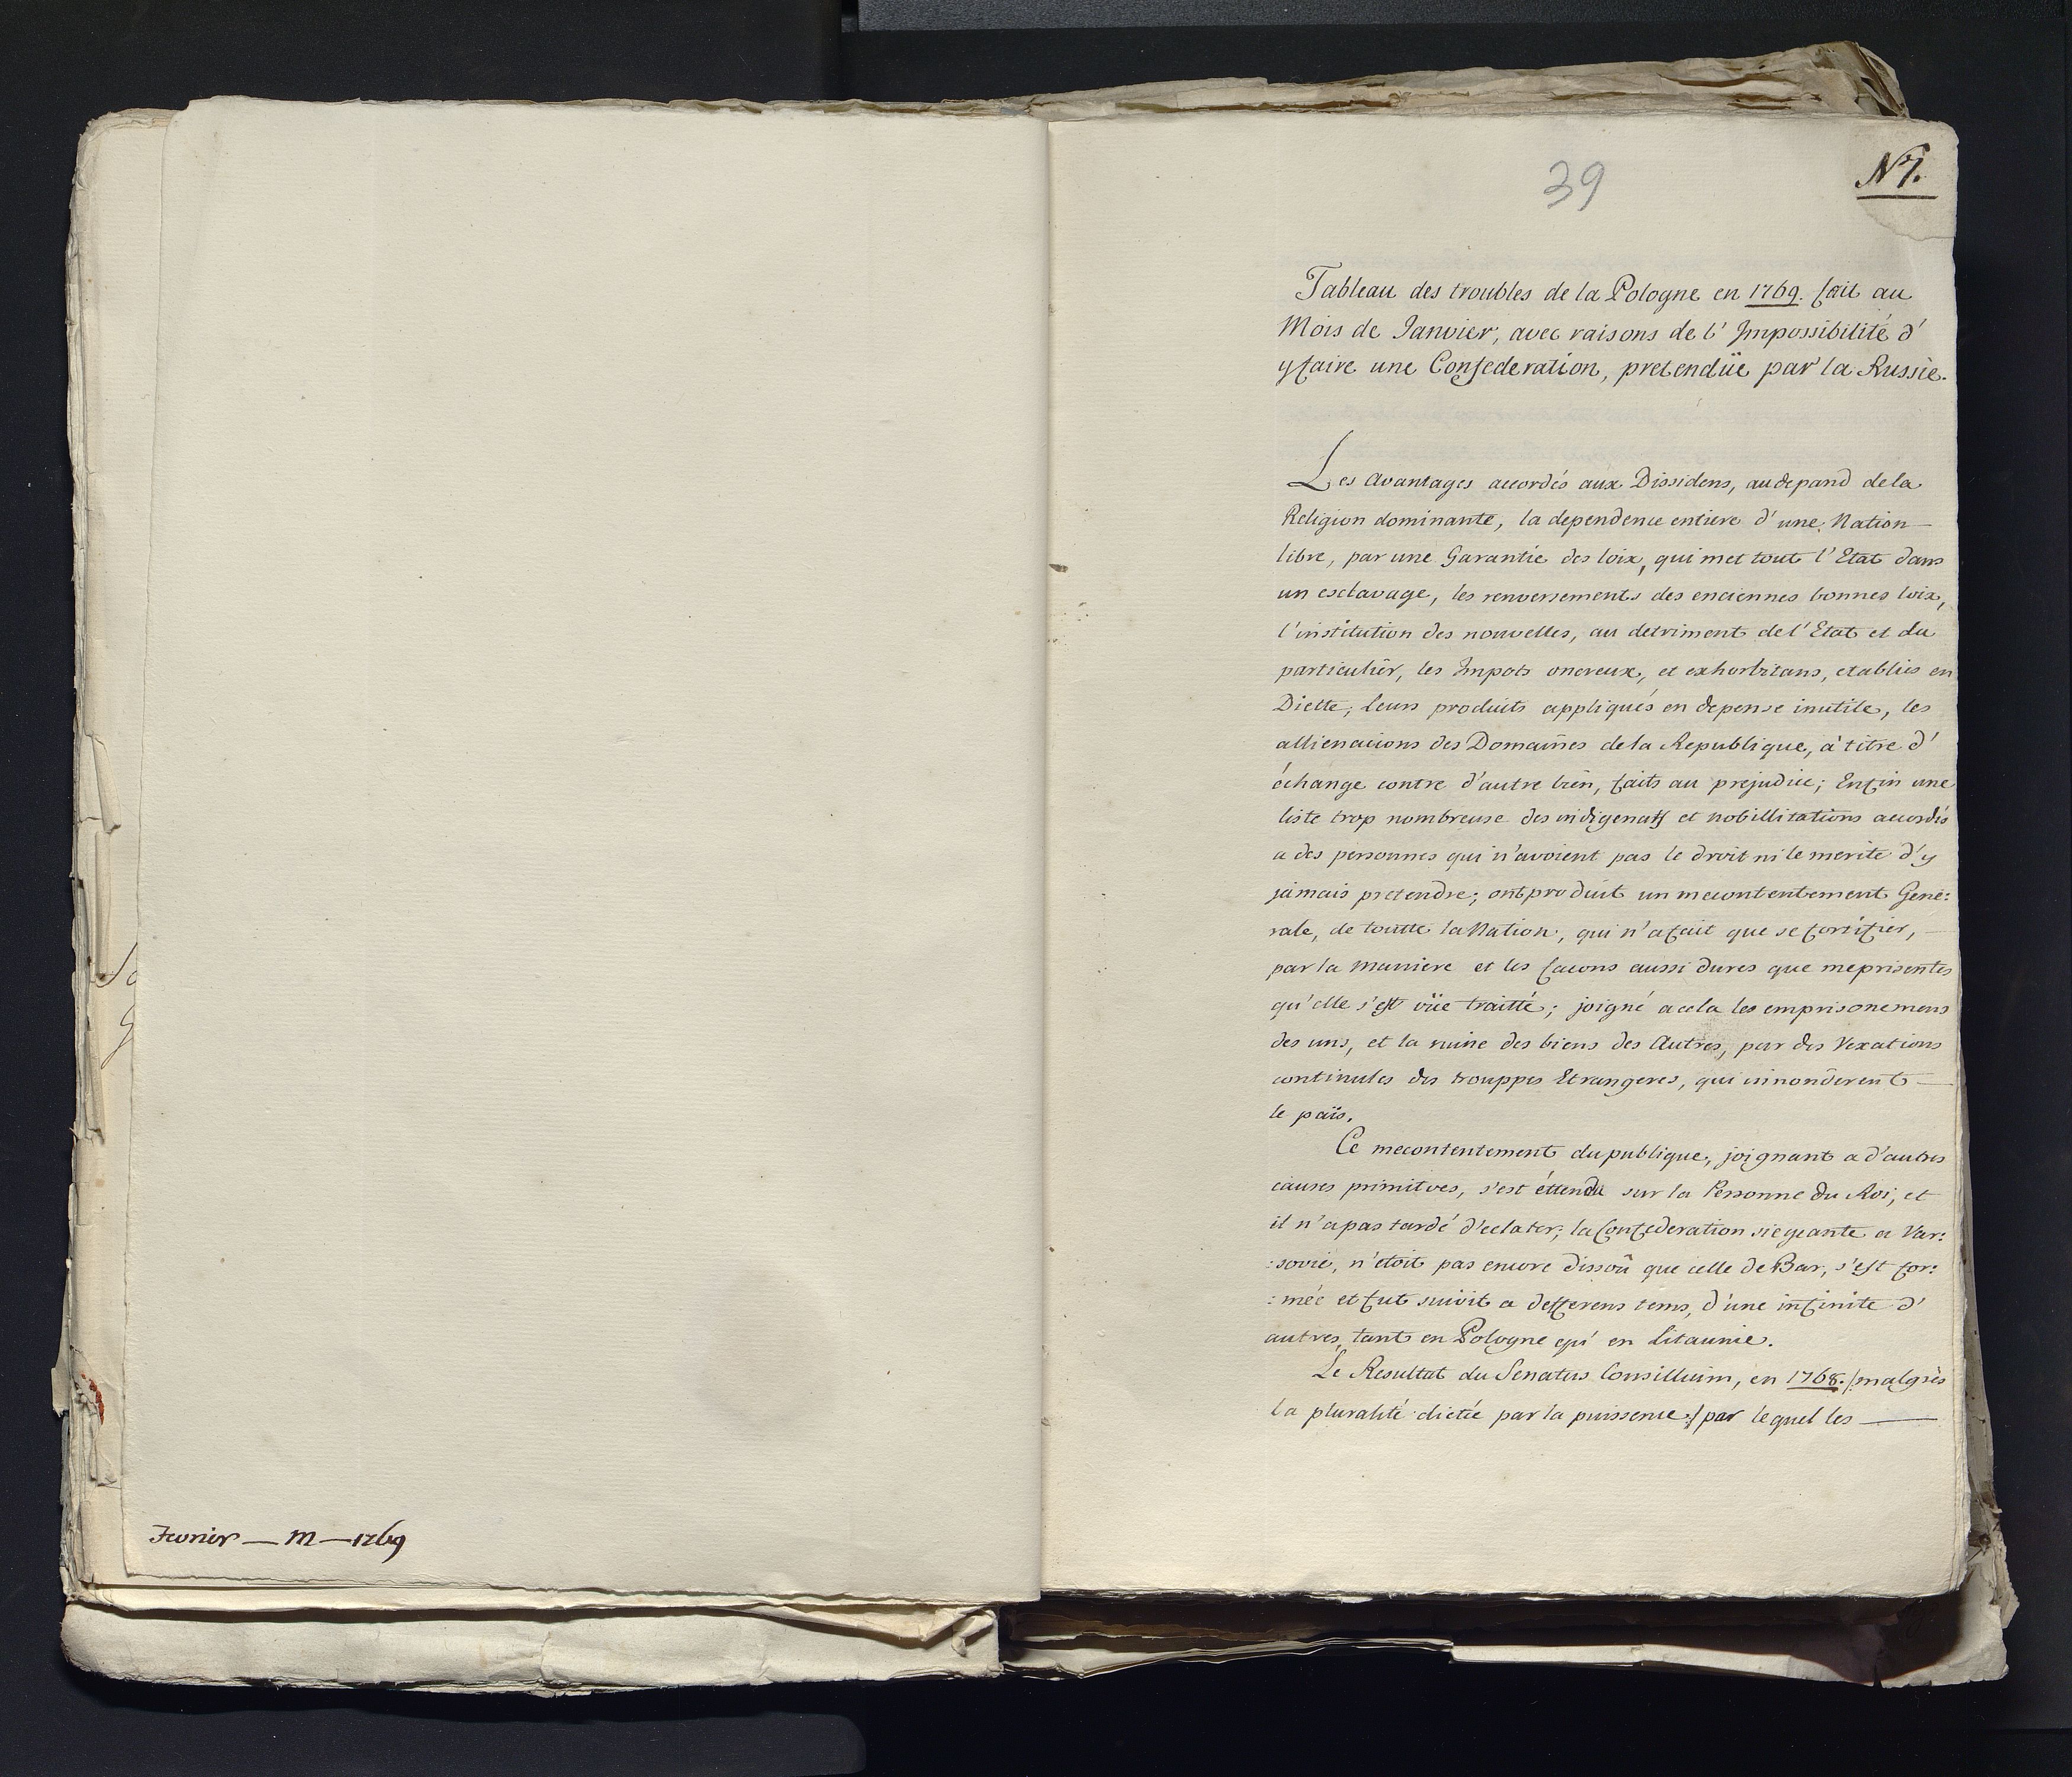 Fevrier — m — 1769
39
N 7.
Tableau des troubles de la Pologne en 1769. fait au
Mois de Janvier, avec raisons de l' Impossibilité d'
y faire une Confederation, pretendüe par la Russie.
Les avantages accordés aux Dissidens, au depand de la
Religion dominante, la dependence entiere d' une Nation —
libre, par une Garantie des loix, qui met tout l' Etat dans
un esclavage, les renversements des enciennes bonnes loix,
l'institution des nouvelles, au detriment de l' Etat et du
particulier, les Impots onereux, et exhorbitans, etablies en
Diette, leurs produits appliqués en depense inutile, les
allienacions des Domaines de la Republique, à titre d'
échange contre d'autre bien, faits au prejudice; Enfin une
liste trop nombreuse des indigenats et nobillitations accordés
a des personnes qui n'avoient pas le droit ni le merite d'y
jamais pretendre; ont produit un mecontentement Gene:
rale, de toutte la Nation, qui n'a fait que se fortifier, —
par la maniere et les facons aussi dures que meprisentes
qu'elle s'est vüe traitté; joigné a cela les emprisonemens
des uns, et la ruine des biens des Autres, par des Vexations
continules des trouppes Etrangeres, qui innonderent —
le païs.
Ce mecontentement du publique, joignant a d'autres
causes primitves, s'est éttendu sur la Personne du Roi, et
il n'a pas tardé d'eclater; la Confederation siegeante a Var:
:sovie, n'etoit pas encore dissoû que celle de Bar, s'est for:
:mée et fut suivit a defferens tems, d'une infinite d'
autres, tant en Pologne qu' en Litaunie.
Le Resultat du Senatus Consillium, en 1768. /:malgrès
la pluralité dictée par la puissence:/ par lequel les —